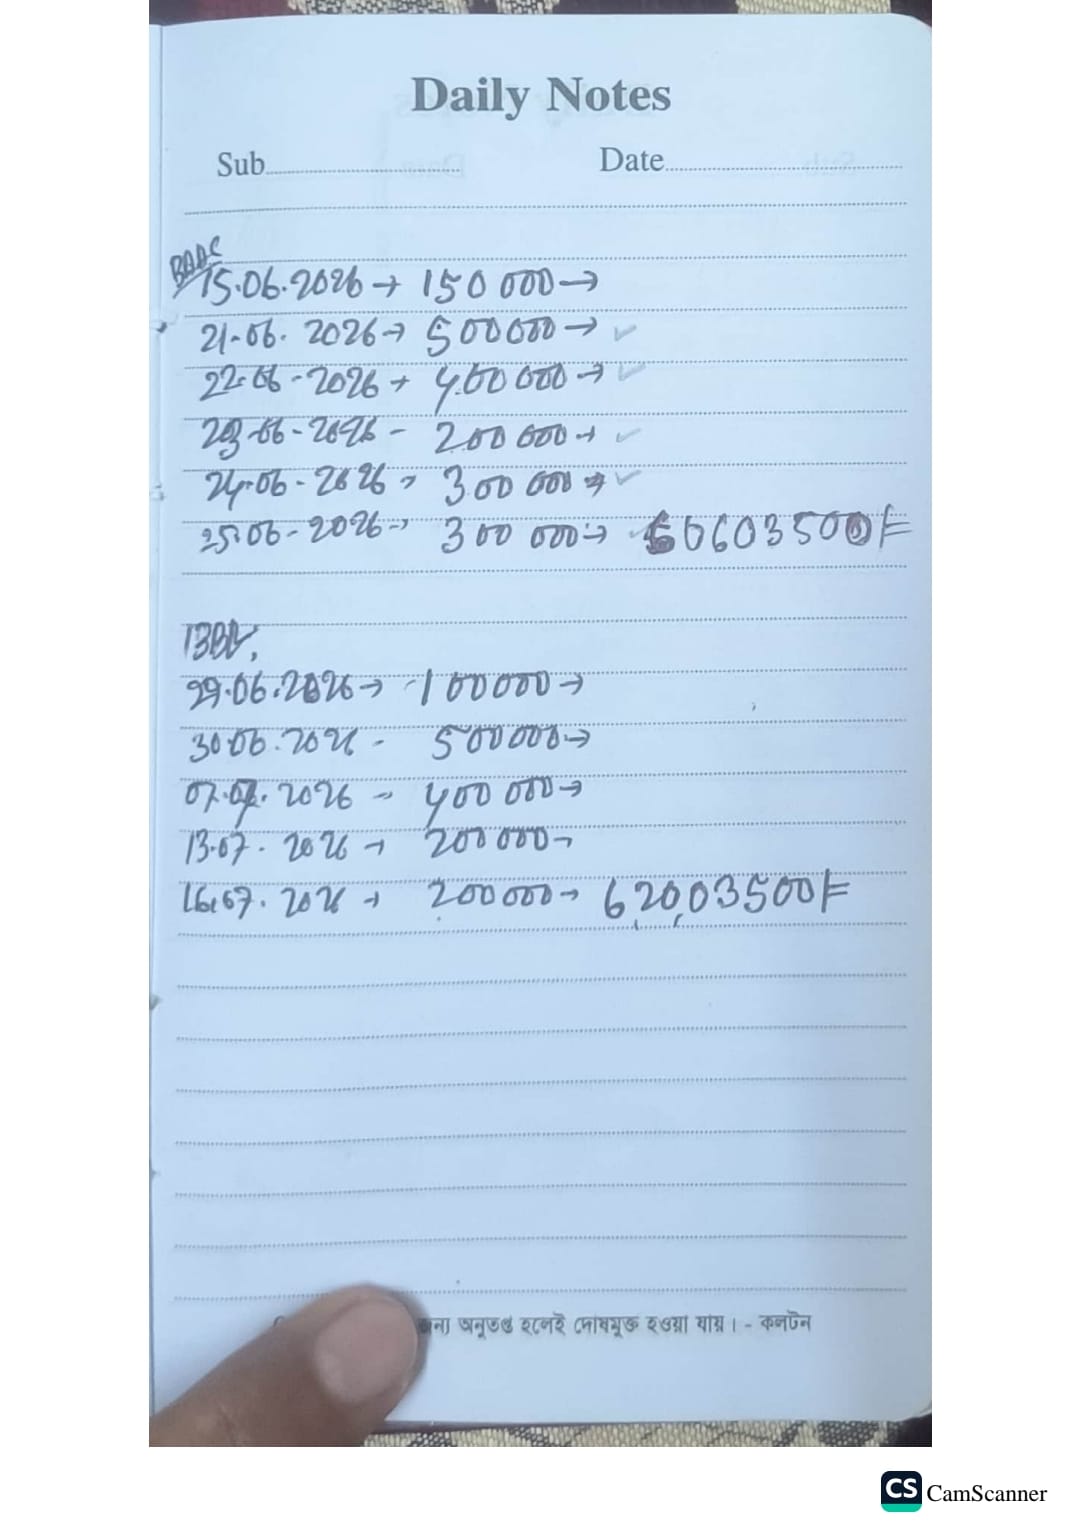 Daily Notes
Sub Date
BADC
15.06.2026 → 150 000 →
21-06. 2026 → 500000 → ✓
22-06-2026 → 400 000 → ✓
23-06-2026 - 200 000 → ✓
24-06-2026 → 300 000 → ✓
25.06-2026 → 300 000 → 60603500/=
29.06.2026 → 100000 →
30.06.2026 - 500000 →
07.07.2026 - 400 000 →
13.07.2026 → 200000 →
16.07.2026 → 200000 → 62003500/=
জন্য অনুতপ্ত হলেই দোষমুক্ত হওয়া যায়। - কলটন
CS CamScanner